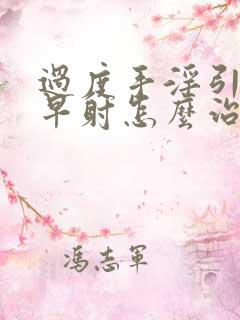 過度手淫引
早射怎麼治
馮志軍